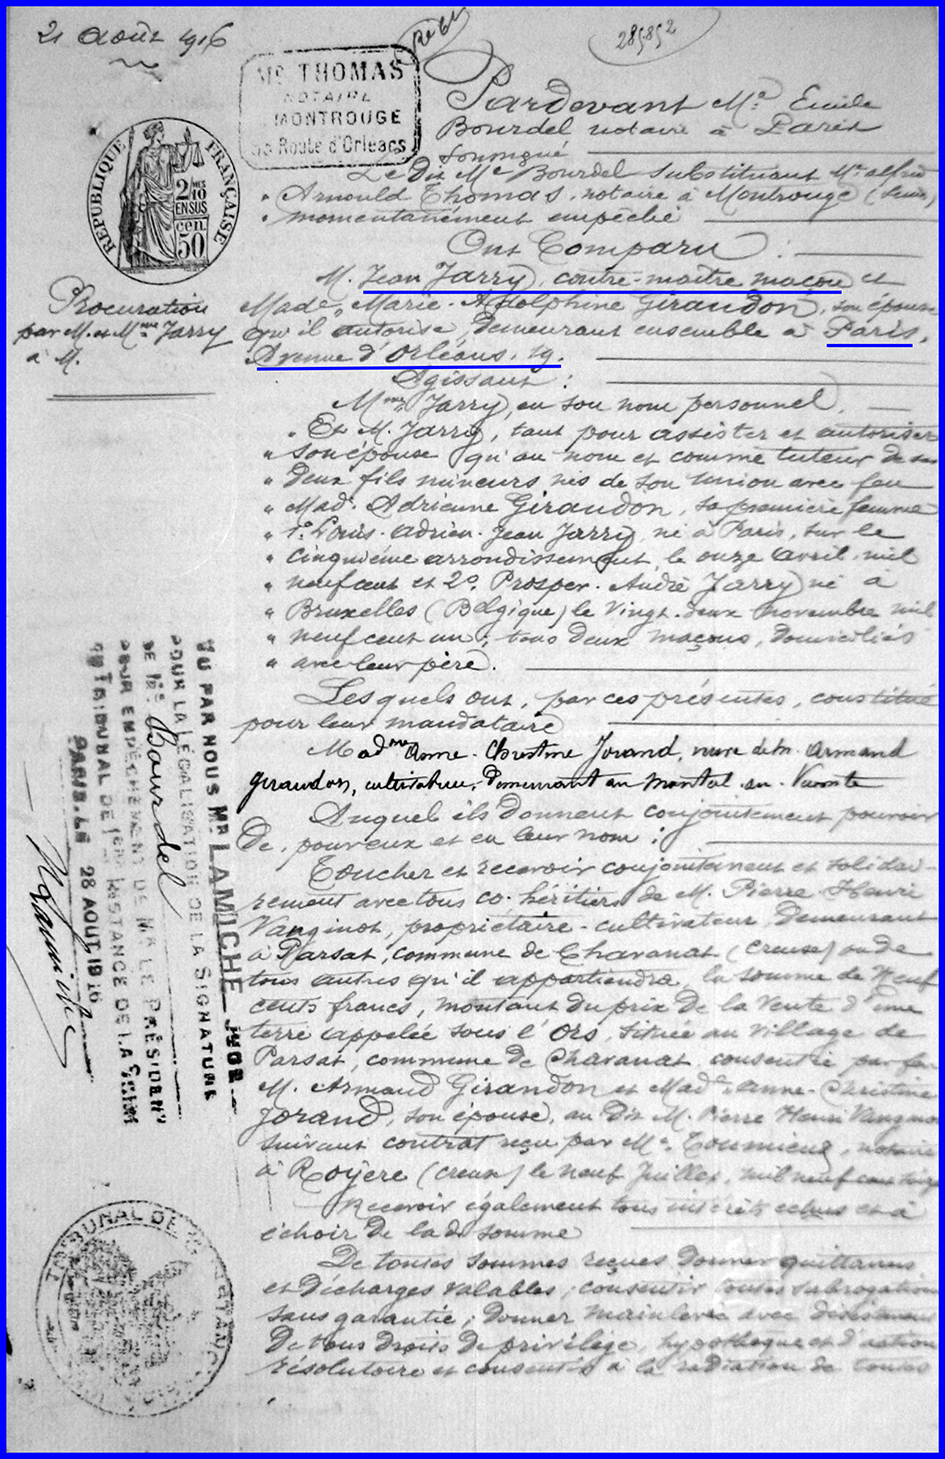 21 Août 1916
285852
Me THOMAS
NOTAIRE
MONTROUGE
Route d'Orléans
RÉPUBLIQUE FRANÇAISE
2/10
EN SUS
50 cen
Pardevant Me Emile
Bourdel notaire à Paris
soussigné
Le dit Me Bourdel substituant Me Alfred
Arnould Thomas, notaire à Montrouge (Seine)
momentanément empêché
Ont Comparu :
M. Jean Jarry, contre-maître maçon et
Made Marie-Adolphine Giraudon, son épouse
qu'il autorise, demeurant ensemble à Paris,
Avenue d'Orléans, 19.
Procuration
par M. et Mme Jarry
à M.
Agissant :
Mme Jarry, en son nom personnel,
Et M. Jarry, tant pour assister et autoriser
son épouse qu'au nom et comme tuteur de ses
deux fils mineurs nés de son union avec feu
Made Adrienne Giraudon, sa première femme
1o Louis-Adrien-Jean Jarry, né à Paris, sur le
cinquième arrondissement, le onze avril mil
neuf cent et 2o Prosper-André Jarry né à
Bruxelles (Belgique) le vingt-deux novembre mil
neuf cent un ; tous deux maçons, domiciliés
avec leur père.
Lesquels ont, par ces présentes, constitué
pour leur mandataire
Madme Anne-Christine Jorand, veuve de M. Armand
Giraudon, cultivatrice, demeurant au Montal au Vicomte
Auquel ils donnent conjointement pouvoir
De, pour eux et en leur nom :
Toucher et recevoir conjointement et solidai-
rement avec tous co-héritiers de M. Pierre Henri
Vanginot, propriétaire-cultivateur, demeurant
à Parsat, commune de Chavanat (Creuse) ou de
tous autres qu'il appartiendra, la somme de Neuf
cents francs, montant du prix de la vente d'une
terre appelée sous l'Ors, située au village de
Parsat, commune de Chavanat consentie par feu
M. Armand Giraudon et Made Anne-Christine
Jorand, son épouse, au dit M. Pierre Henri Vanginot
suivant contrat reçu par Me Toumieux, notaire
à Royère (Creuse) le neuf Juillet, mil neuf cent
Recevoir également tous intérêts échus et à
échoir de lad. somme
De toutes sommes reçues donner quittances
et décharges valables ; consentir toutes subrogations
sans garantie ; donner mainlevée avec désistement
De tous droits de privilège, hypothèque et d'action
résolutoire et consentir à la radiation de toutes
VU PAR NOUS Mr LAMICHE JUGE
POUR LA LÉGALISATION DE LA SIGNATURE
DE Me Bourdel
POUR EMPÊCHEMENT DE Mr LE PRÉSIDENT
DU TRIBUNAL DE 1ère INSTANCE DE LA SEINE
PARIS, LE 28 AOUT 1916
TRIBUNAL DE